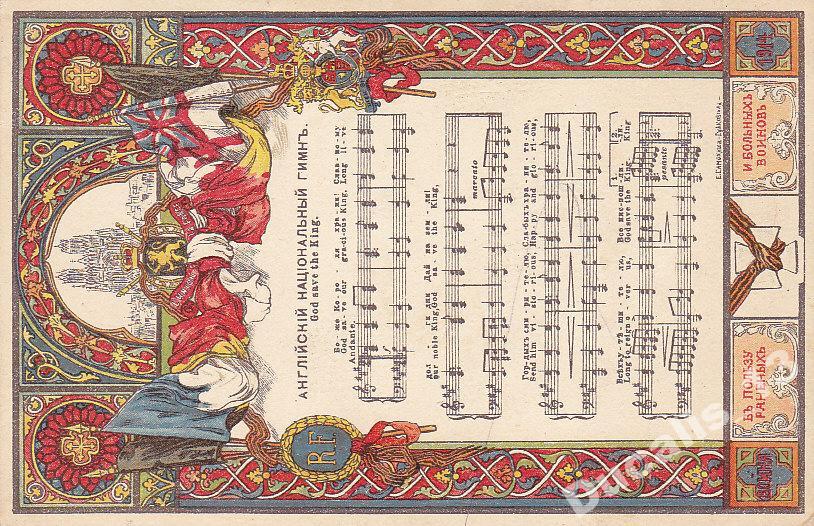 АНГЛІЙСКІЙ НАЦІОНАЛЬНЫЙ ГИМНЪ.
God save the King.
Бо - же Ко - ро - ля хра - ни! Слав - но - му
God sa - ve our gra - ci - ous King, Long li - ve
Andante.
дол - ги дни Дай на зем - ли!
our noble King, God sa - ve the King,
marcato
Гор - дыхъ сми - ри - те - лю, Сла - быхъ хра - ни - те - лю,
Send him vi - cto - ri - ous, Hap - py and glo - ri - ous,
1. 2.
Всѣхъ у - тѣ - ши - те - лю,
Long to reign o - ver us, God save the King King
pesante
R F
ВЪ ПОЛЬЗУ
РАНЕНЫХЪ
И БОЛЬНЫХЪ
ВОИНОВЪ
1914
Ducalis